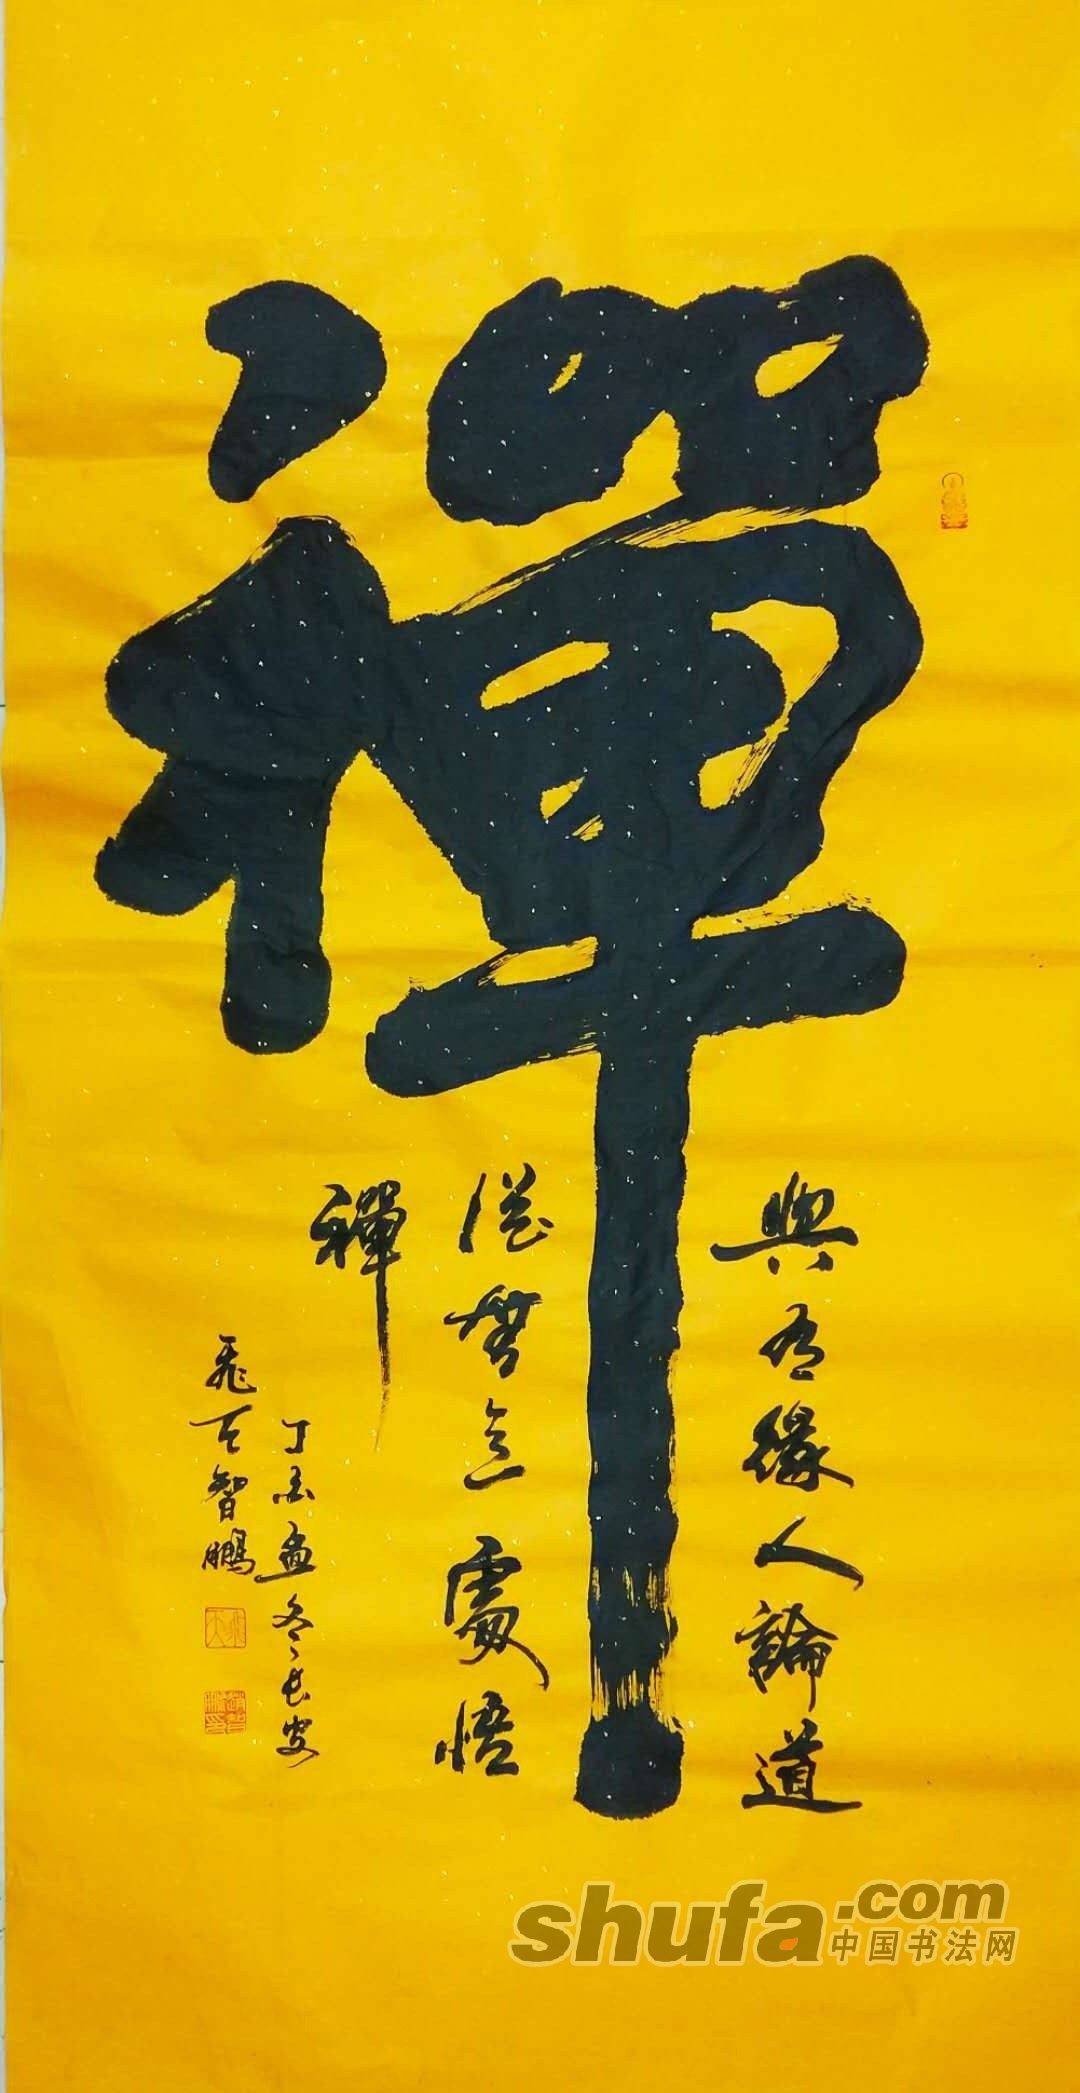 禪
與有緣人論道
從無意處悟
禪
丁酉孟冬長安
飛天智鵬
shufa.com
中国书法网